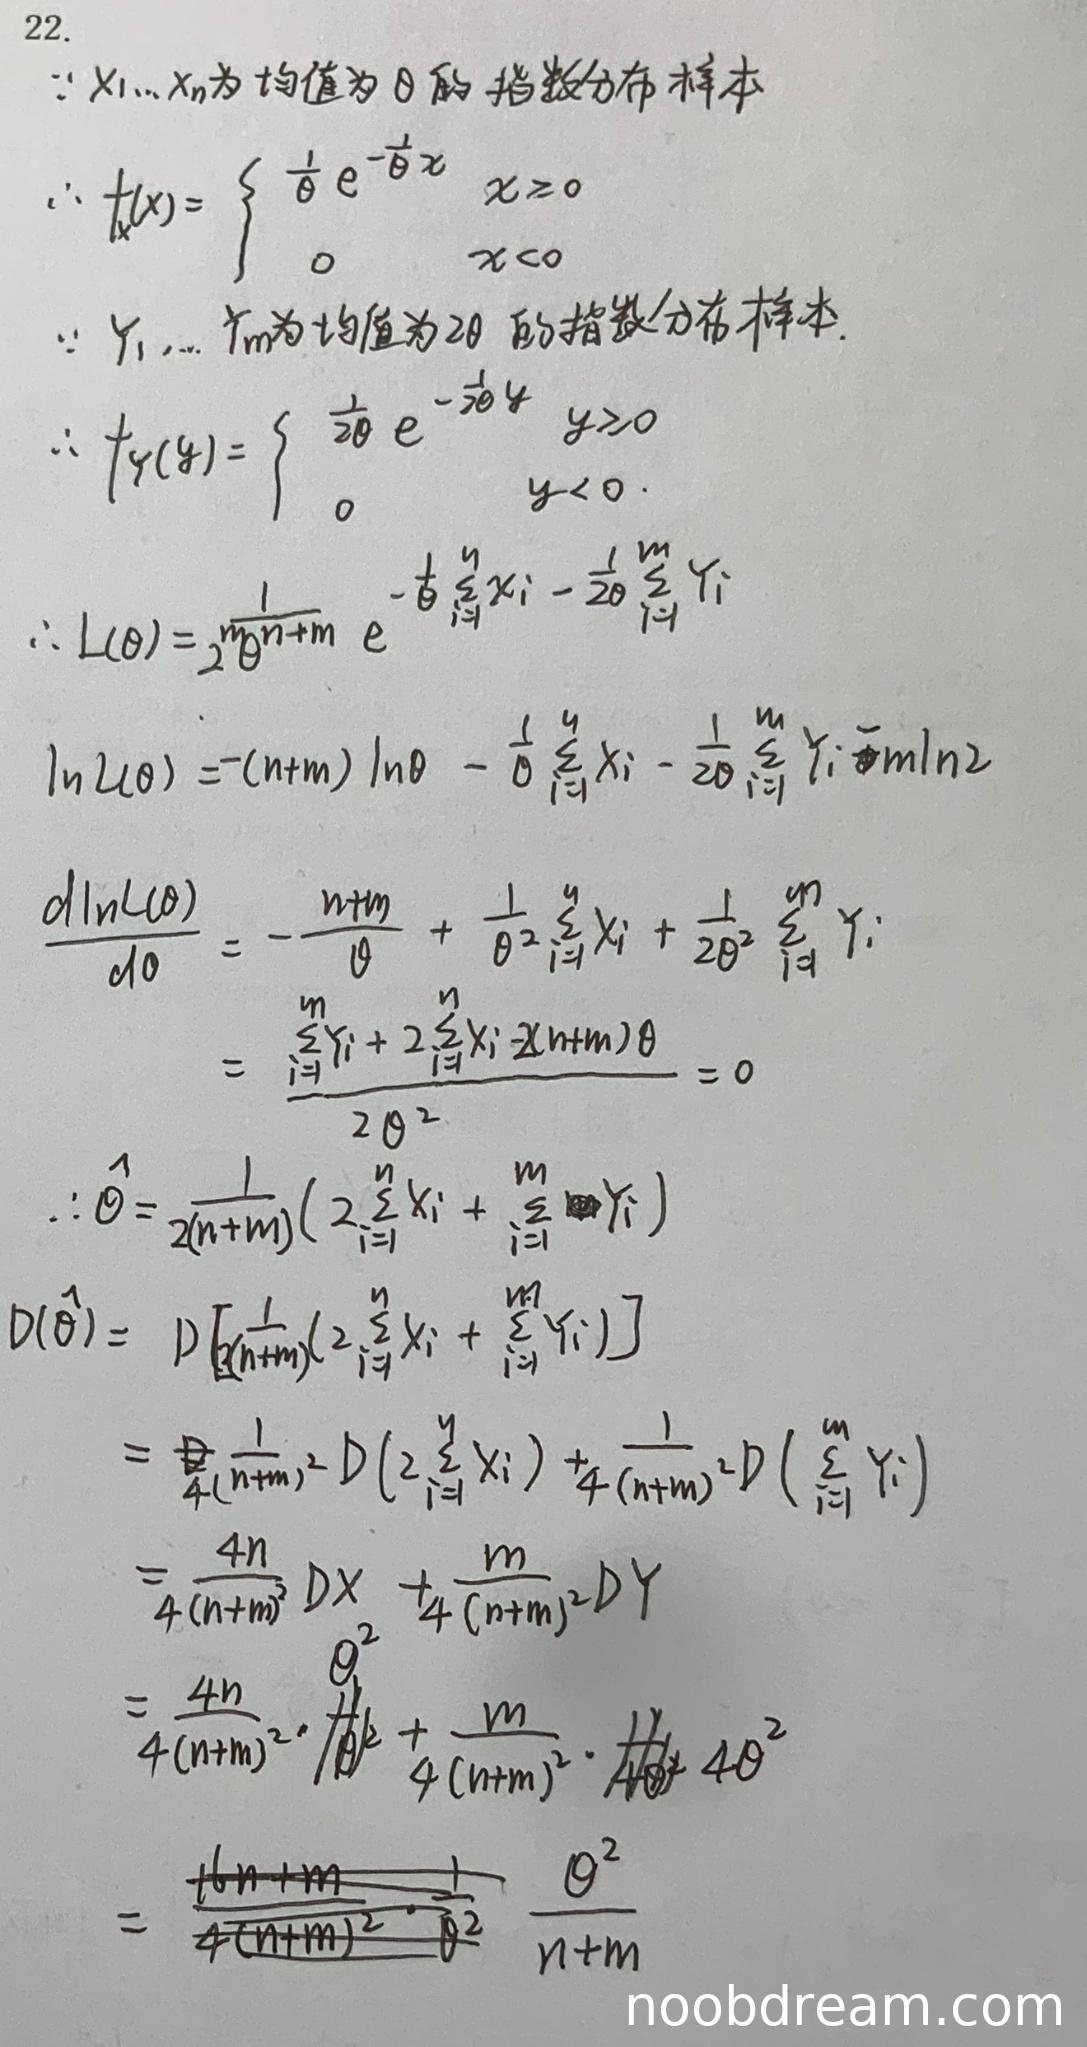 22.
∵ X₁...Xₙ为均值为θ的指数分布样本
∴ fₓ(x) = { 1/θ e^(-1/θ x) x≥0
0 x<0
∵ Y₁,... Yₘ为均值为2θ的指数分布样本.
∴ f_Y(y) = { 1/2θ e^(-1/2θ y) y≥0
0 y<0.
∴ L(θ) = 1/(2^m θ^(n+m)) e^(-1/θ Σ_{i=1}^{n} xᵢ - 1/2θ Σ_{i=1}^{m} Yᵢ)
lnL(θ) = -(n+m) lnθ - 1/θ Σ_{i=1}^{n} Xᵢ - 1/2θ Σ_{i=1}^{m} Yᵢ - mln2
dlnL(θ)/dθ = - (n+m)/θ + 1/θ² Σ_{i=1}^{n} Xᵢ + 1/2θ² Σ_{i=1}^{m} Yᵢ
= (Σ_{i=1}^{m} Yᵢ + 2Σ_{i=1}^{n} Xᵢ - 2(n+m)θ)/2θ² = 0
∴ θ̂ = 1/2(n+m) (2Σ_{i=1}^{n} Xᵢ + Σ_{i=1}^{m} Yᵢ)
D(θ̂) = D[1/2(n+m) (2Σ_{i=1}^{n} Xᵢ + Σ_{i=1}^{m} Yᵢ)]
= 1/4(n+m)² D(2Σ_{i=1}^{n} Xᵢ) + 1/4(n+m)² D(Σ_{i=1}^{m} Yᵢ)
= 4n/4(n+m)² DX + m/4(n+m)² DY
= 4n/4(n+m)² · θ² + m/4(n+m)² · 4θ²
= θ²/(n+m)
noobdream.com